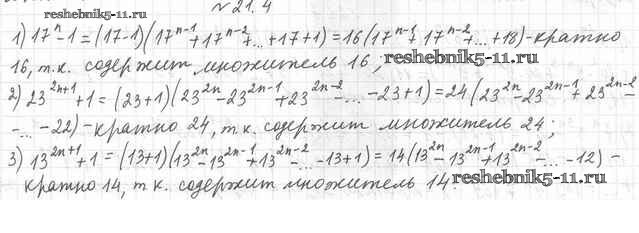 №21.4
reshebnik5-11.ru
1) 17ⁿ-1=(17-1)(17ⁿ⁻¹+17ⁿ⁻²+...+17+1)=16(17ⁿ⁻¹+17ⁿ⁻²+...+18)-кратно
16, т.к. содержит множитель 16;
reshebnik5-11.ru
2) 23²ⁿ⁺¹+1=(23+1)(23²ⁿ-23²ⁿ⁻¹+23²ⁿ⁻²-...-23+1)=24(23²ⁿ-23²ⁿ⁻¹+23²ⁿ⁻²-
-...-22)-кратно 24, т.к. содержит множитель 24;
3) 13²ⁿ⁺¹+1=(13+1)(13²ⁿ-13²ⁿ⁻¹+13²ⁿ⁻²-...-13+1)=14(13²ⁿ-13²ⁿ⁻¹+13²ⁿ⁻²-...-12)-
кратно 14, т.к. содержит множитель 14.
reshebnik5-11.ru